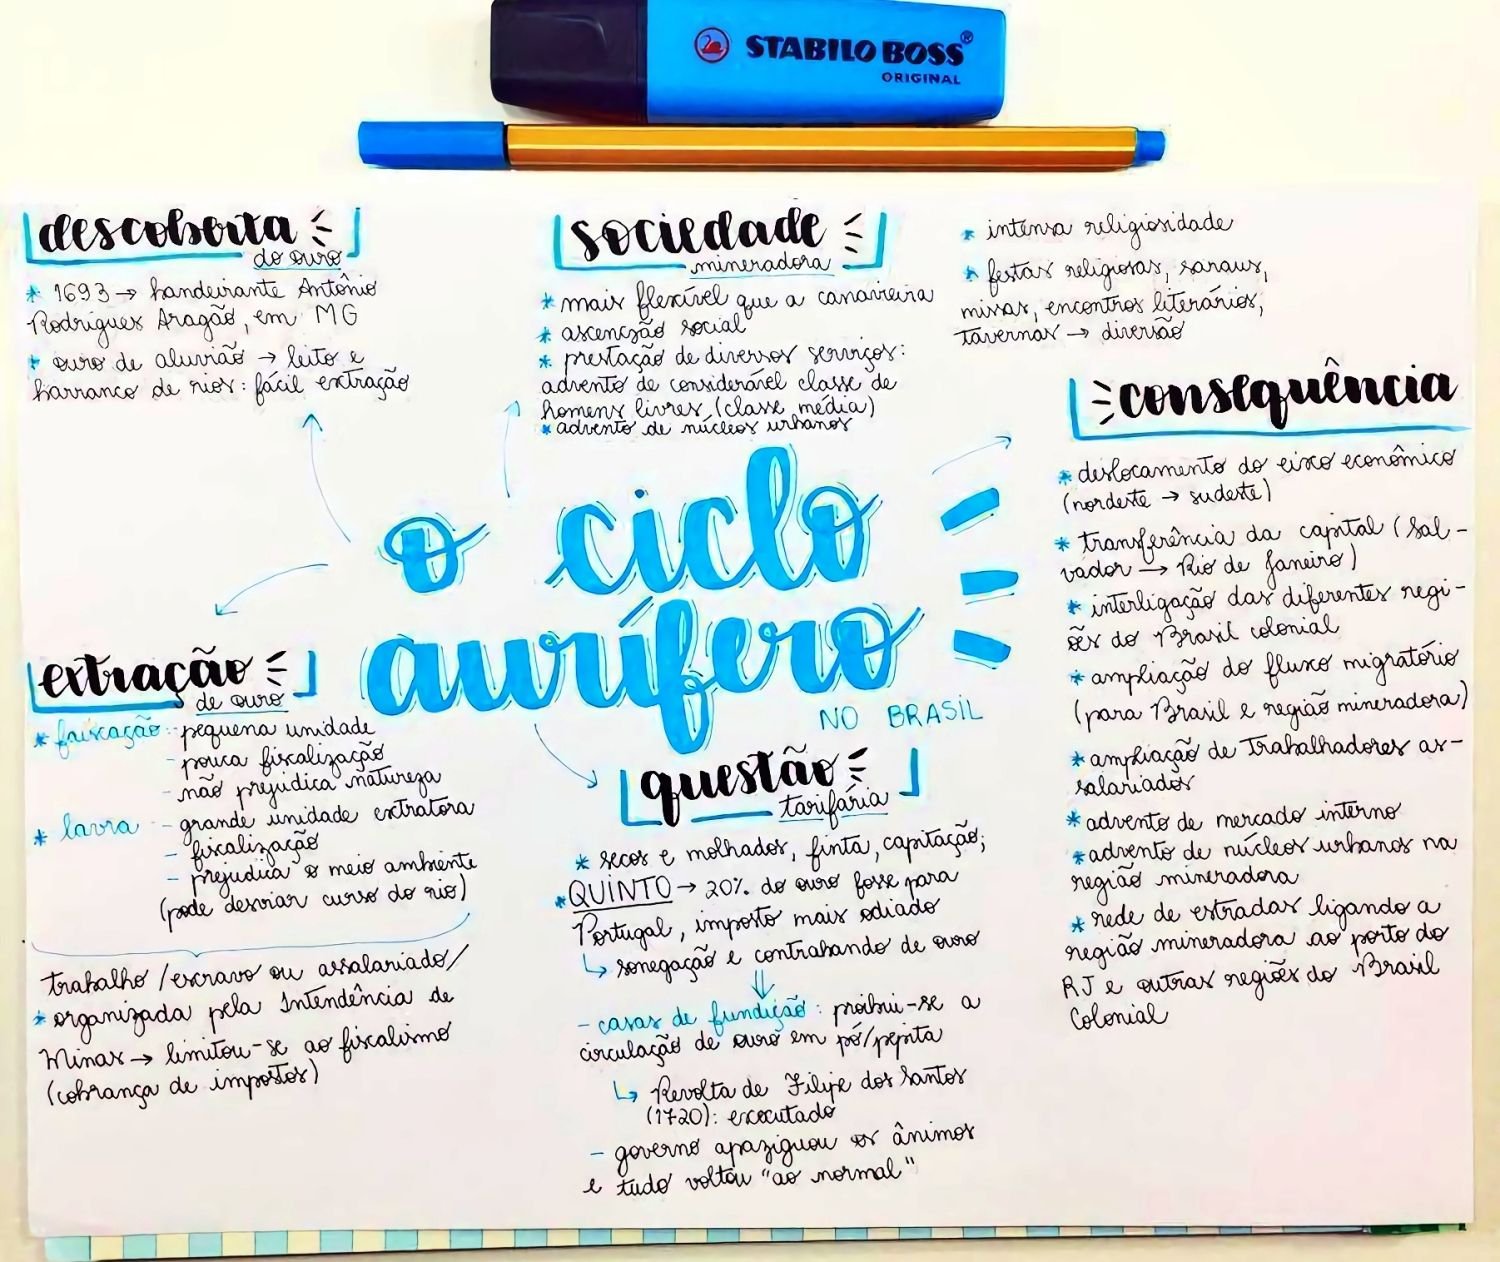 STABILO BOSS®
ORIGINAL
descoberta
do ouro
* 1693 → bandeirante Antônio
Rodrigues Aragão, em MG
* ouro de aluvião → leito e
barranco de rios: fácil extração
sociedade
mineradora
* mais flexível que a canavieira
* ascenção social
* prestação de diversos serviços:
advento de considerável classe de
homens livres (classe média)
* advento de núcleos urbanos
* intensa religiosidade
* festas religiosas, saraus,
missas, encontros literários,
tavernas → diversão
o ciclo
aurífero
NO BRASIL
extração
de ouro
* faiscação - pequena unidade
- pouca fiscalização
- não prejudica natureza
* lavra - grande unidade extratora
- fiscalização
- prejudica o meio ambiente
(pode desviar curso do rio)
trabalho /escravo ou assalariado/
* organizada pela Intendência de
Minas → limitou-se ao fiscalismo
(cobrança de impostos)
questão
tarifária
* secos e molhados, finta, capitação;
* QUINTO → 20% do ouro fosse para
Portugal, imposto mais odiado
↳ sonegação e contrabando de ouro
⇓
- casas de fundição: proibiu-se a
circulação de ouro em pó/pepita
↳ Revolta de Filipe dos Santos
(1720): executado
- governo apaziguou os ânimos
e tudo voltou "ao normal"
consequência
* deslocamento do eixo econômico
(nordeste → sudeste)
* transferência da capital (Sal-
vador → Rio de Janeiro)
* interligação das diferentes regi-
ões do Brasil colonial
* ampliação do fluxo migratório
(para Brasil e região mineradora)
* ampliação de trabalhadores as-
salariados
* advento de mercado interno
* advento de núcleos urbanos na
região mineradora
* rede de estradas ligando a
região mineradora ao porto do
RJ e outras regiões do Brasil
Colonial